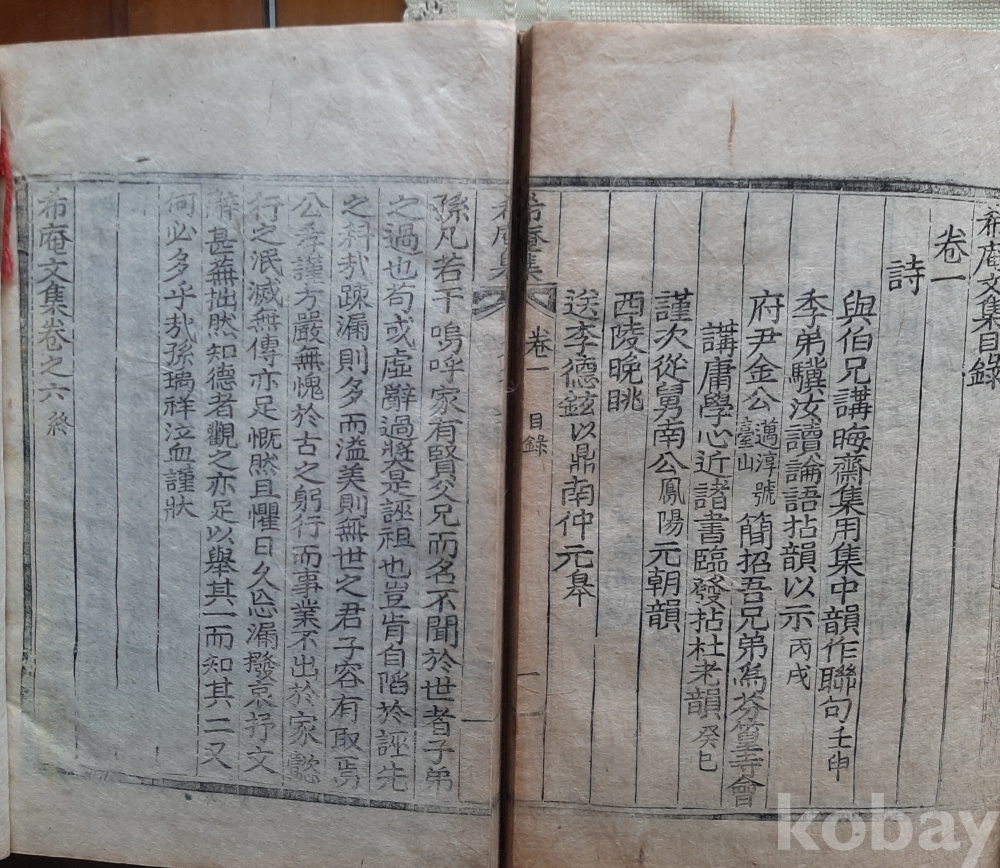 希庵文集目錄
卷一
詩
與伯兄講晦齋集用集中韻作聯句壬申
季弟驥汝讀論語拈韻以示丙戌
府尹金公邁淳號臺山簡招吾兄弟爲芬皇寺會
講庸學心近諸書臨發拈杜老韻癸巳
謹次從舅南公鳳陽元朝韻
西陵晚眺
送李德鉉以鼎南仲元皋
希庵集 卷一 目錄 一
孫凡若干嗚呼家有賢父兄而名不聞於世者子弟
之過也苟或虛辭過奬是誣祖也豈肯自陷於誣先
之科哉疎漏則多而溢美則無世之君子容有取焉
公季謹方嚴無愧於古之躬行而事業不出於家懿
行之泯滅無傳亦足慨然且懼日久忘漏撥哀抒文
辭甚蕪拙然知德者觀之亦足以擧其一而知其二又
何必多乎哉孫瑞祥泣血謹狀
希庵文集卷之六終
kobay